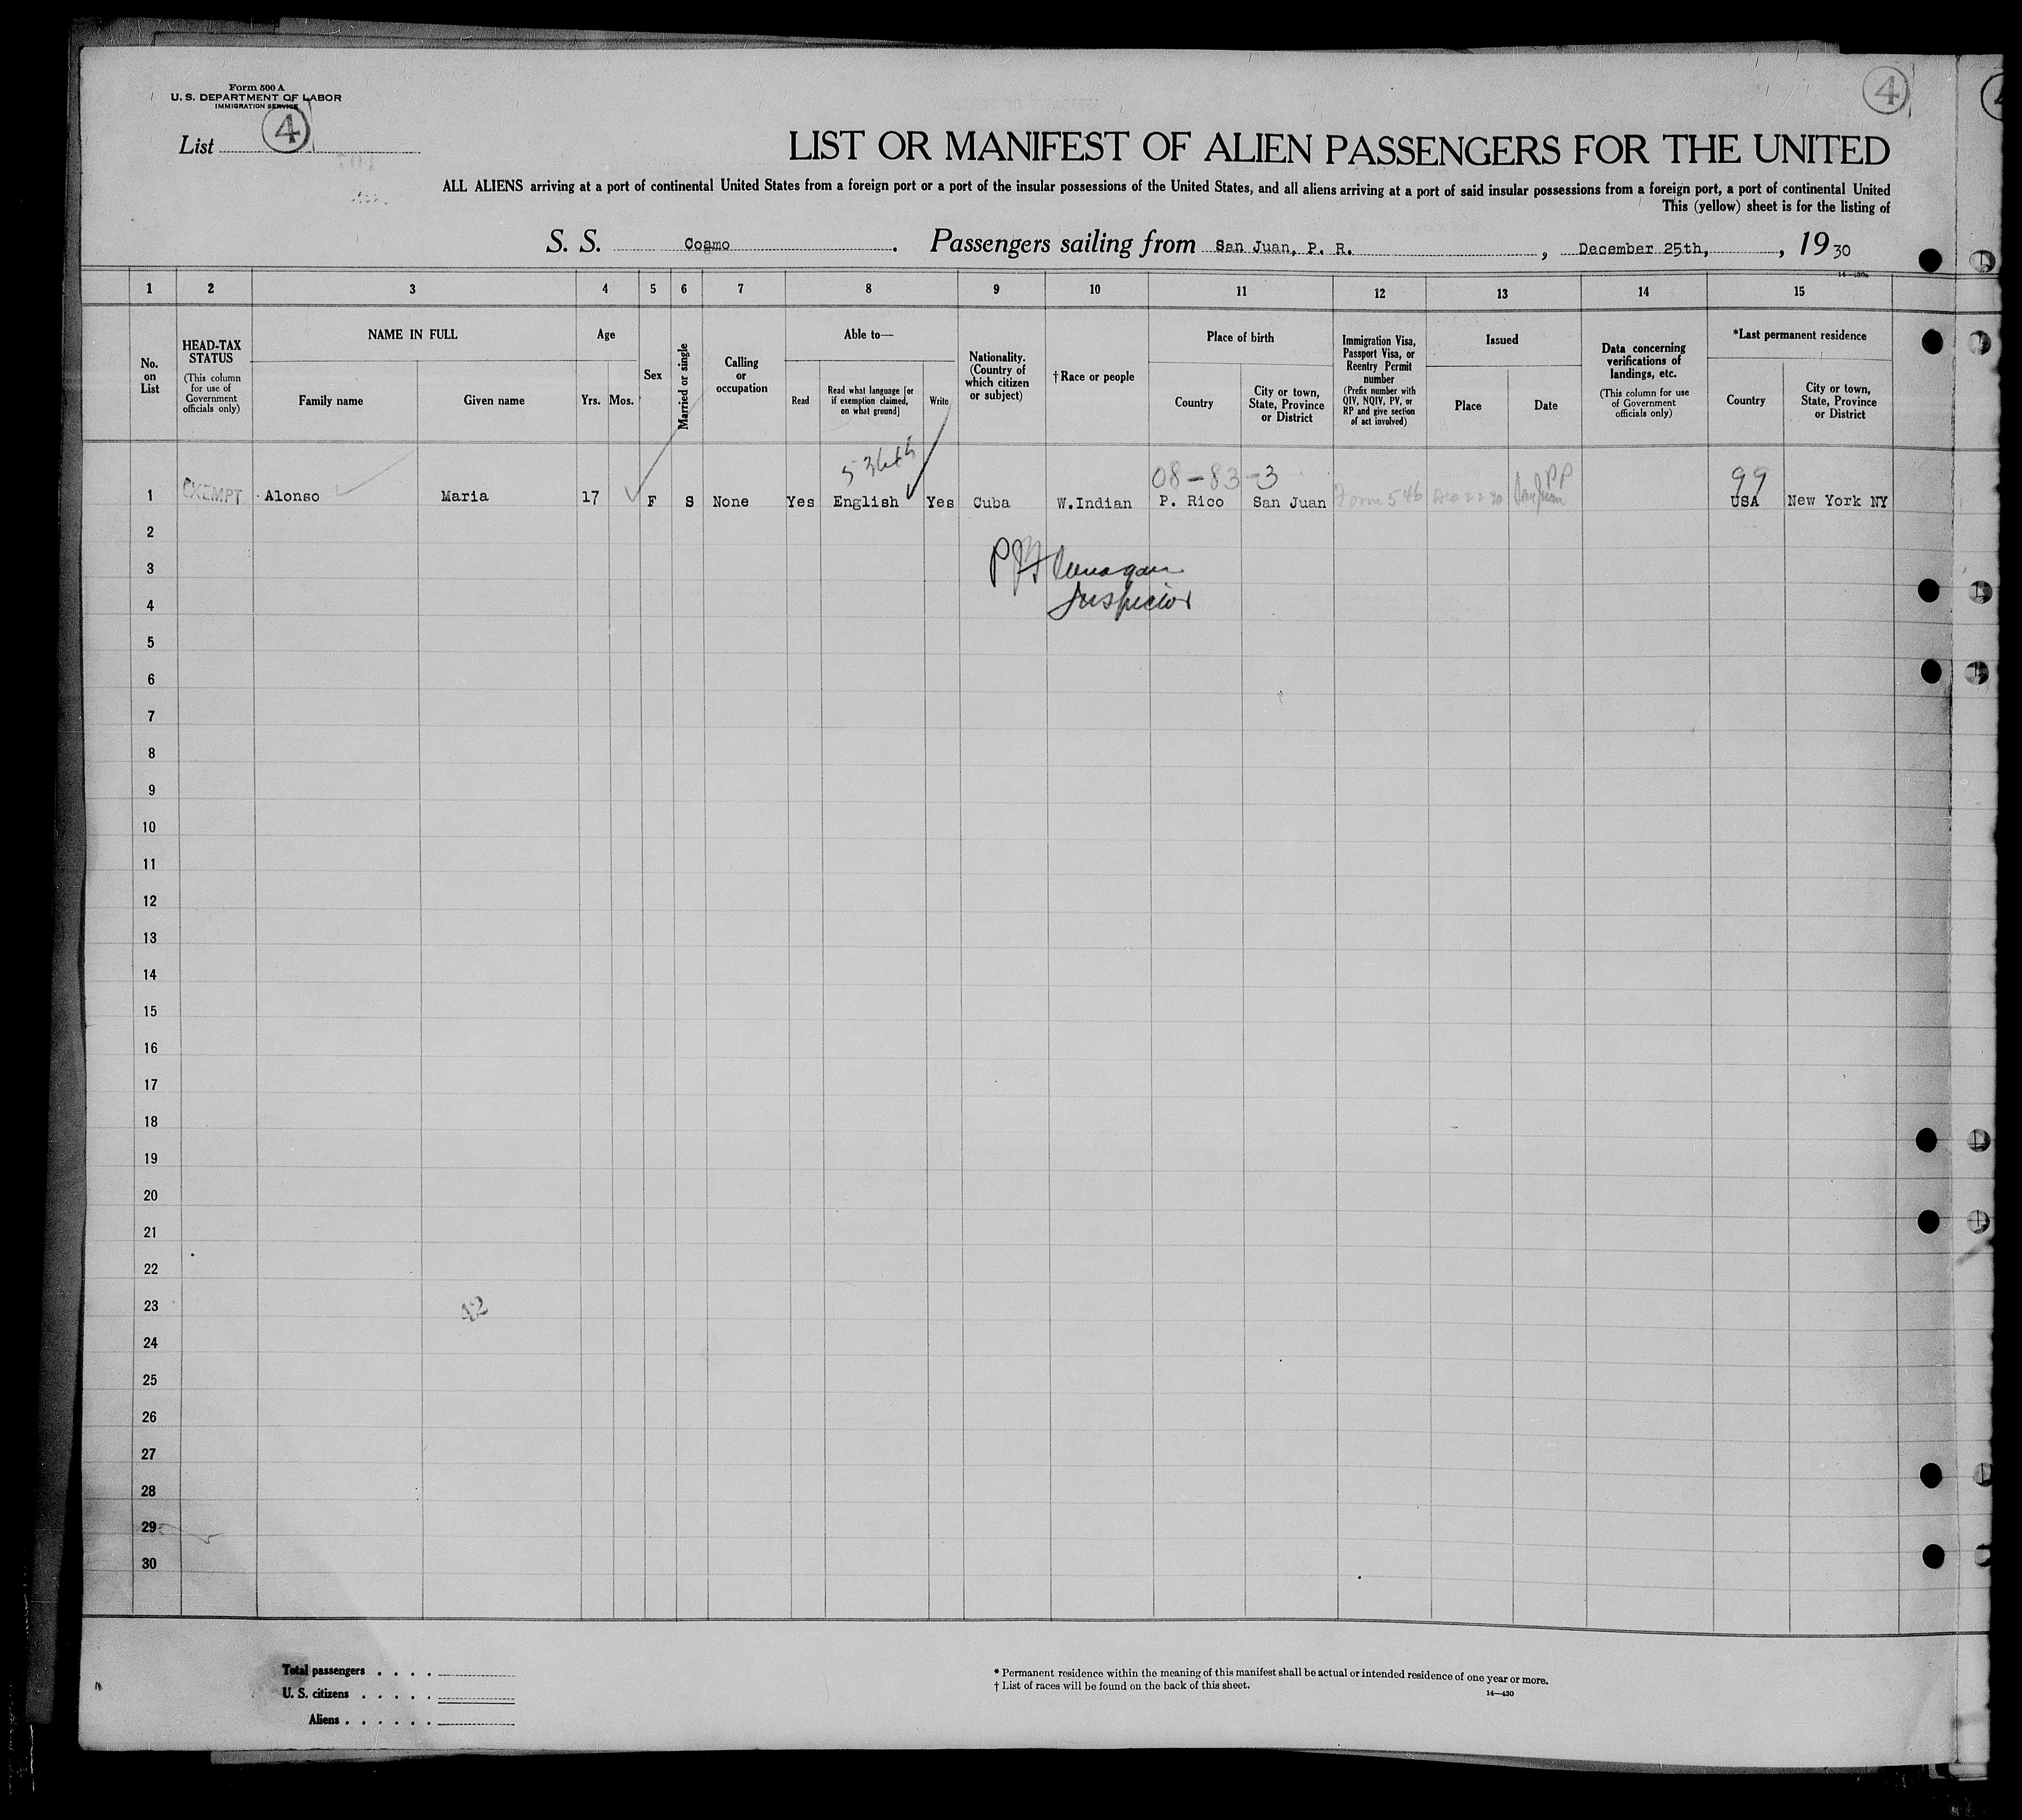 Form 500 A
U. S. DEPARTMENT OF LABOR
IMMIGRATION SERVICE
List 4
4
LIST OR MANIFEST OF ALIEN PASSENGERS FOR THE UNITED
ALL ALIENS arriving at a port of continental United States from a foreign port or a port of the insular possessions of the United States, and all aliens arriving at a port of said insular possessions from a foreign port, a port of continental United
This (yellow) sheet is for the listing of
S. S. Coamo. Passengers sailing from San Juan, P. R., December 25th, , 1930
1 2 3 4 5 6 7 8 9 10 11 12 13 14 15
No. on List
HEAD-TAX STATUS
(This column for use of Government officials only)
NAME IN FULL
Family name
Given name
Age
Yrs. Mos.
Sex
Married or single
Calling or occupation
Able to—
Read
Read what language [or if exemption claimed, on what ground]
Write
Nationality. (Country of which citizen or subject)
† Race or people
Place of birth
Country
City or town, State, Province or District
Immigration Visa, Passport Visa, or Reentry Permit number
(Prefix number with QIV, NQIV, PV, or RP and give section of act involved)
Issued
Place
Date
Data concerning verifications of landings, etc.
(This column for use of Government officials only)
*Last permanent residence
Country
City or town, State, Province or District
08-83-3 PP 99
1 EXEMPT Alonso Maria 17 F S None Yes English Yes Cuba W.Indian P. Rico San Juan Form 546 San Juan USA New York NY
2
3
Inspector
4
5
6
7
8
9
10
11
12
13
14
15
16
17
18
19
20
21
22
23
42
24
25
26
27
28
29
30
Total passengers . . . .
U. S. citizens . . . . .
Aliens . . . . . .
* Permanent residence within the meaning of this manifest shall be actual or intended residence of one year or more.
† List of races will be found on the back of this sheet.
14—430